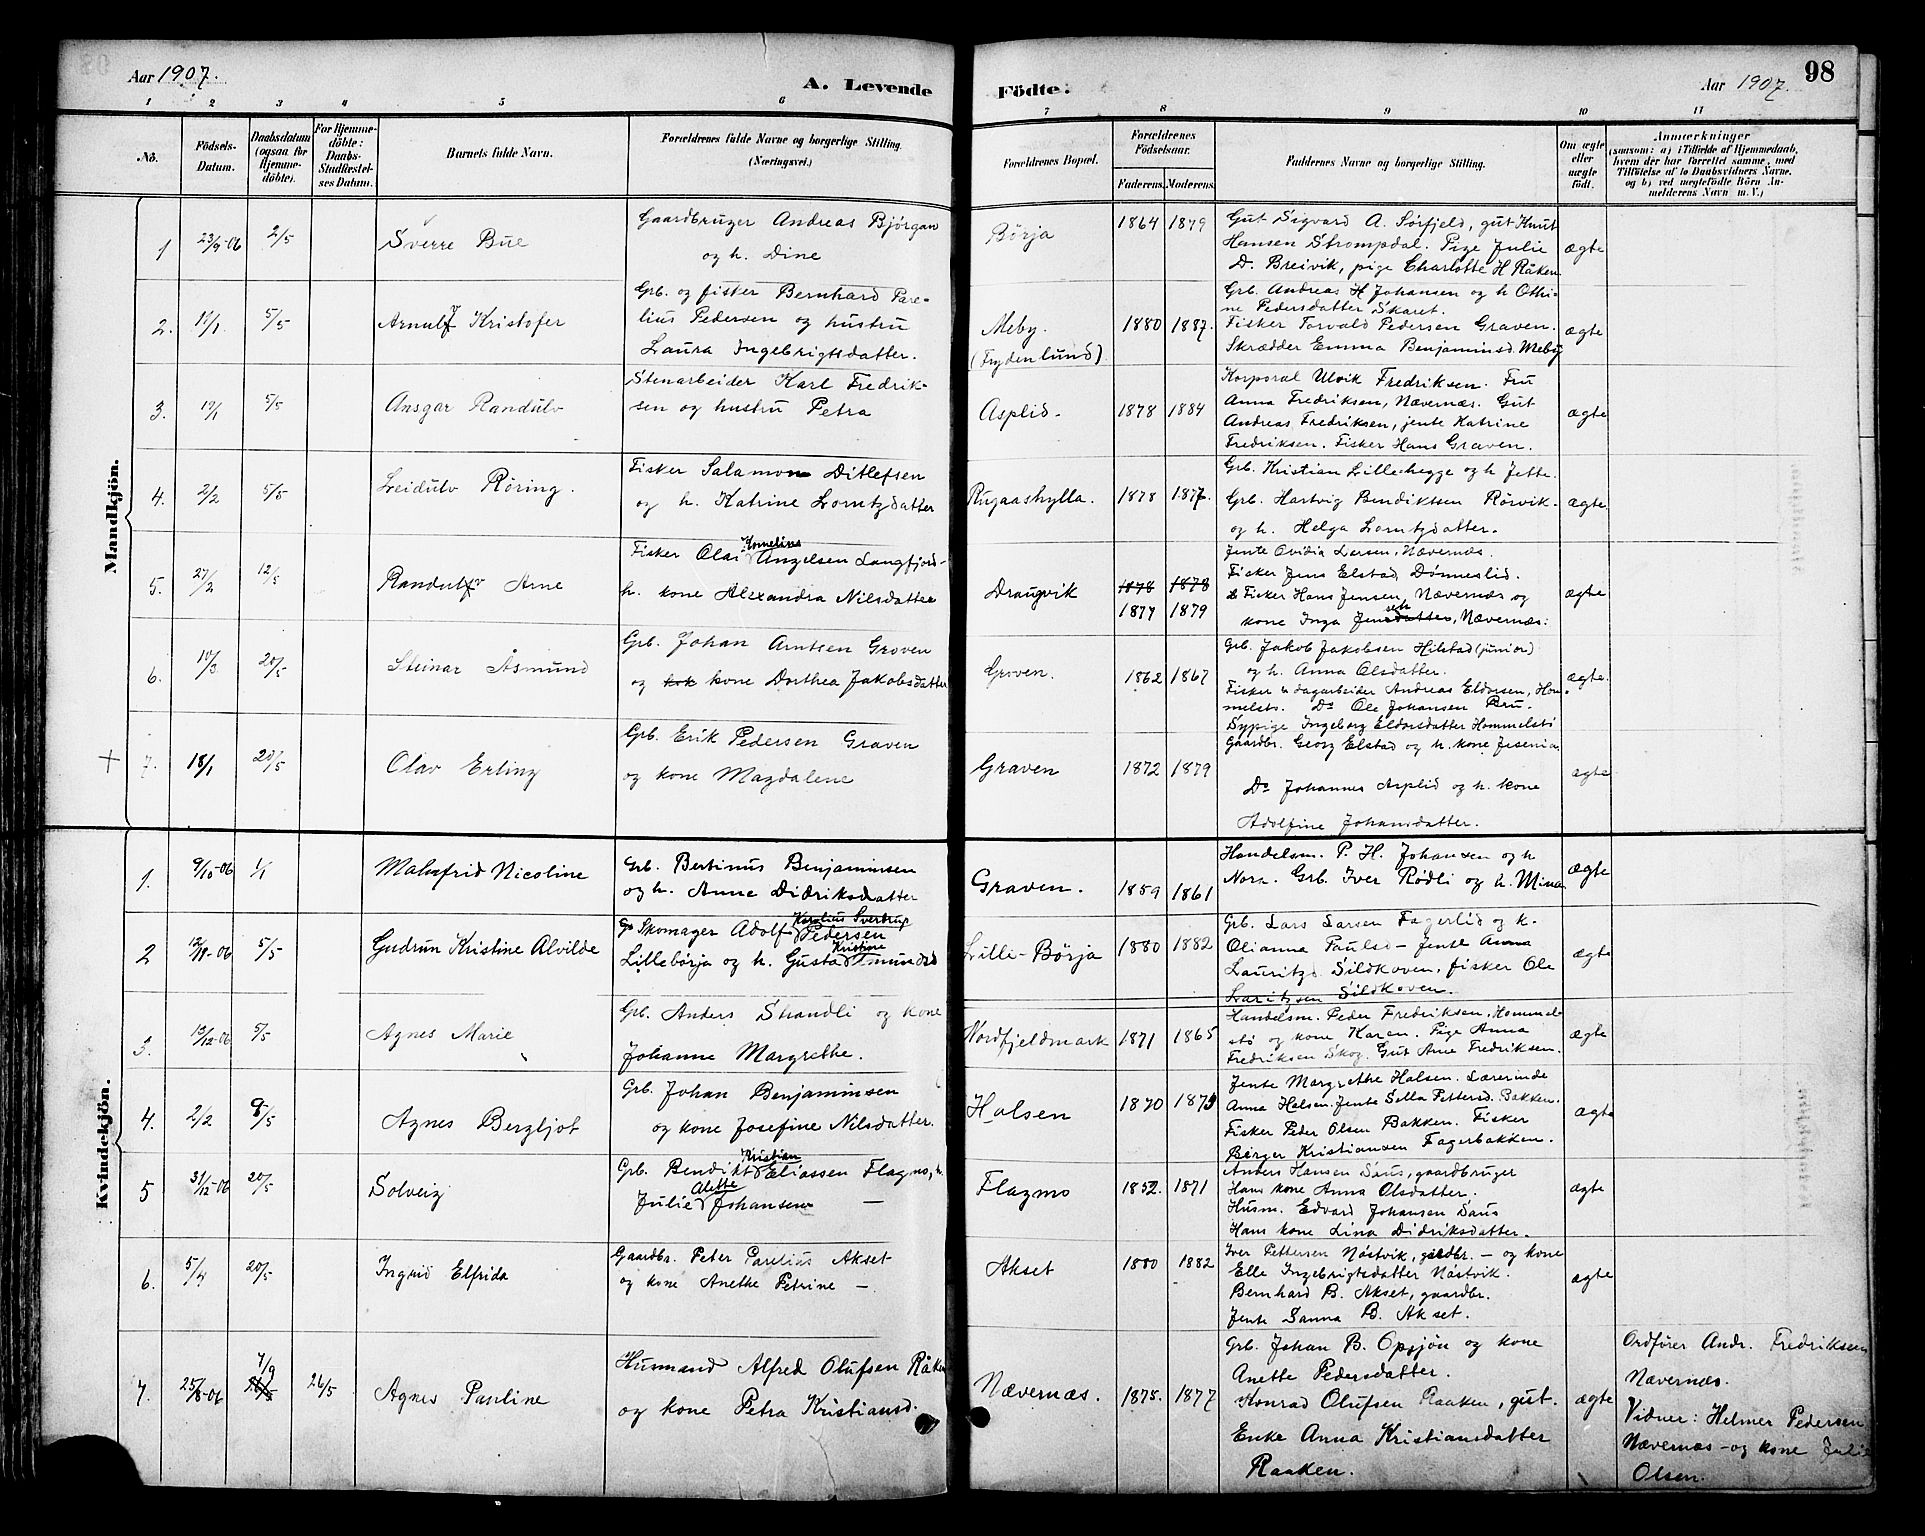 Aar 1907.
A. Levende
Födte:
Aar 1907.
98
1 2 3 4 5 6 7 8 9 10 11
No.
Födsels-
Datum.
Daabsdatum
(ogsaa for
Hjemme-
döbte).
For Hjemme-
döbte:
Daabs-
Stadfæstel-
ses Datum.
Barnets fulde Navn.
Forældrenes fulde Navne og borgerlige Stilling.
(Næringsvei.)
Forældrenes Bopæl.
Forældrenes
Födselsaar.
Faderens. Moderens.
Faddernes Navne og borgerlige Stilling.
Om ægte
eller
uægte
født.
Anmærkninger
(saasom: a) i Tilfælde af Hjemmedaab,
hvem der har forrettet samme, med
Tilföielse af to Daabsvidners Navne,
og b) ved uegtefödte Börn An-
melderens Navn m. V.)
Mandkjön.
1
23/9-06
2/5
Sverre Bue
Gaardbruger Andreas Bjørgan
og h. Dine
Börja
1864 1879
Gut Sigvard A. Sörfjeld, gut Knut
Hansen Strompdal. Pige Julie
D. Breivik, pige Charlotte H Råken
ægte
2.
5/5
Arnulf Kristofer
Grb. og fisker Bernhard Pare-
lius Pedersen og hustru
Laura Ingebrigtsdatter.
Meby.
(Frydenlund)
1880 1887.
Grb. Andreas H Johansen og h Othi-
ne Pedersdatter Skaret.
Fisker Torvald Pedersen Graven.
Skrædder Emma Benjaminsd. Meby
ægte
3.
19/1
5/5
Ansgar Randulv
Stenarbeider Karl Fredrik-
sen og hustru Petra
Asplid.
1878 1884
Korporal Ulvik Fredriksen. Fru
Anna Fredriksen, Nævernæs. Gut
Andreas Fredriksen, jente Katrine
Fredriksen. Fisker Hans Graven.
ægte
4.
2/2
5/5
Leidulv Röring.
Fisker Salamon Ditlefsen
og h. Katrine Lorntzdatter
Rugaashylla.
1878 1877.
Grb. Kristian Lillehegge og h Jette.
Grb. Hartvig Bendiktsen Rörvik.
og h. Helga Lorntzdatter.
ægte
5.
27/2
12/5
Randulv Arne
Fisker Olai Kornelius Angelsen Langfjord-
h. kone Alexandra Nilsdatter
Draugvik
1878 1878
1877 1879
Jente Ovidia Larsen, Nævernæs.
Fisker Jens Elstad, Dönneslid.
Fisker Hans Jensen, Nævernæs og
kone Inga Jensdatter, Nævernæs.
ægte
6.
10/3
20/5
Steinar Åsmund
Grb. Johan Arntsen Groven
og kone Dorthea Jakobsdatter
Groven.
1862 1867
Grb. Jakob Jakobsen Hilstad (junior)
og h. Anna Olsdatter.
Fisker & dagarbeider Andreas Eldorsen, Hom-
melstö. Do Ole Johansen Bru.
Sypige Ingeborg Eldorsdatter Hommelstö
ægte.
+
7.
18/1
20/5
Olav Erling
Grb. Erik Pedersen Graven
og kone Magdalene
Graven
1872 1879
Gaardbr. Georg Elstad og h. kone Jesenia
Do Johannes Asplid og h. kone
Adolfine Johansdatter.
ægte
Kvindekjön.
1.
9/10-06
1/1
Malmfrid Nicoline
Grb. Bertinus Benjaminsen
og h. Anne Didriksdatter
Graven.
1859 1861
Handelsm. P. H. Johansen og h
Nora. Grb. Iver Rödli og h. Mina
ægte
2
5/5
Gudrun Kristine Alvilde
Skomager Adolf Karolius Sverdrup Pedersen
Lillebörja og h. Gusta Kristine
Lille-Börja
1880 1882
Grb. Lars Larsen Fagerlid og k.
Olianna Paulsd- Jente Anna
Lauritzs Sildkoven, fisker Ole
Laritzsen Sildkoven.
ægte
3.
5/5
Agnes Marie
Grb. Anders Strandli og kone
Johanne Margrethe.
Nordfjeldmark
1871 1865
Handelsm. Peder Fredriksen, Hommel-
stö og kone Karen. Pige Anna
Fredriksen Skog. Gut Arne Fredriksen.
ægte
4.
2/2
9/5
Agnes Bergljot
Grb. Johan Benjaminsen
og kone Josefine Nilsdatter.
Halsen
1870
Jente Margrethe Halsen. Lærerinde
Anna Halsen. Jente Sella Pettersd. Bakken.
Fisker Peder Olsen Bakken. Fisker
Börger Kristiansen Fagerbakken.
ægte
5
31/12-06
20/5
Solveig
Grb. Bendikt Kristian Eliassen Flagmo, h.
Julie Alette Johansen —
Flagmo
1852. 1871
Anders Hansen Saus, gaardbruger
Hans kone Anna Olsdatter.
Husm. Edvard Johansen Saus
Hans kone Lina Didriksdatter.
ægte
6.
5/4
20/5
Ingrid Elfrida
Gaardbr. Peter Parelius Akset
og kone Anette Petrine —
Akset
1880 1882
Iver Pettersen Nöstvik, gaardbr. — og kone
Elle Ingebrigtsdatter Nöstvik.
Bernhard B. Akset, gaardbr.
Jente Sanna B. Akset.
ægte
7.
25/8-06
7/9
26/5
Agnes Pauline
Husmand Alfred Olufsen Råken
og kone Petra Kristiansd.
Nævernæs.
1875. 1877
Grb. Johan B. Oppjön og kone
Anette Pedersdatter.
Konrad Olufsen Raaken, gut.
Enke Anna Kristiansdatter
Raaken.
ægte
Ordfører Andr. Fredriksen
Nævernæs.
Vidner: Helmer Pedersen
Nævernæs - og kone Julie
Olsen.